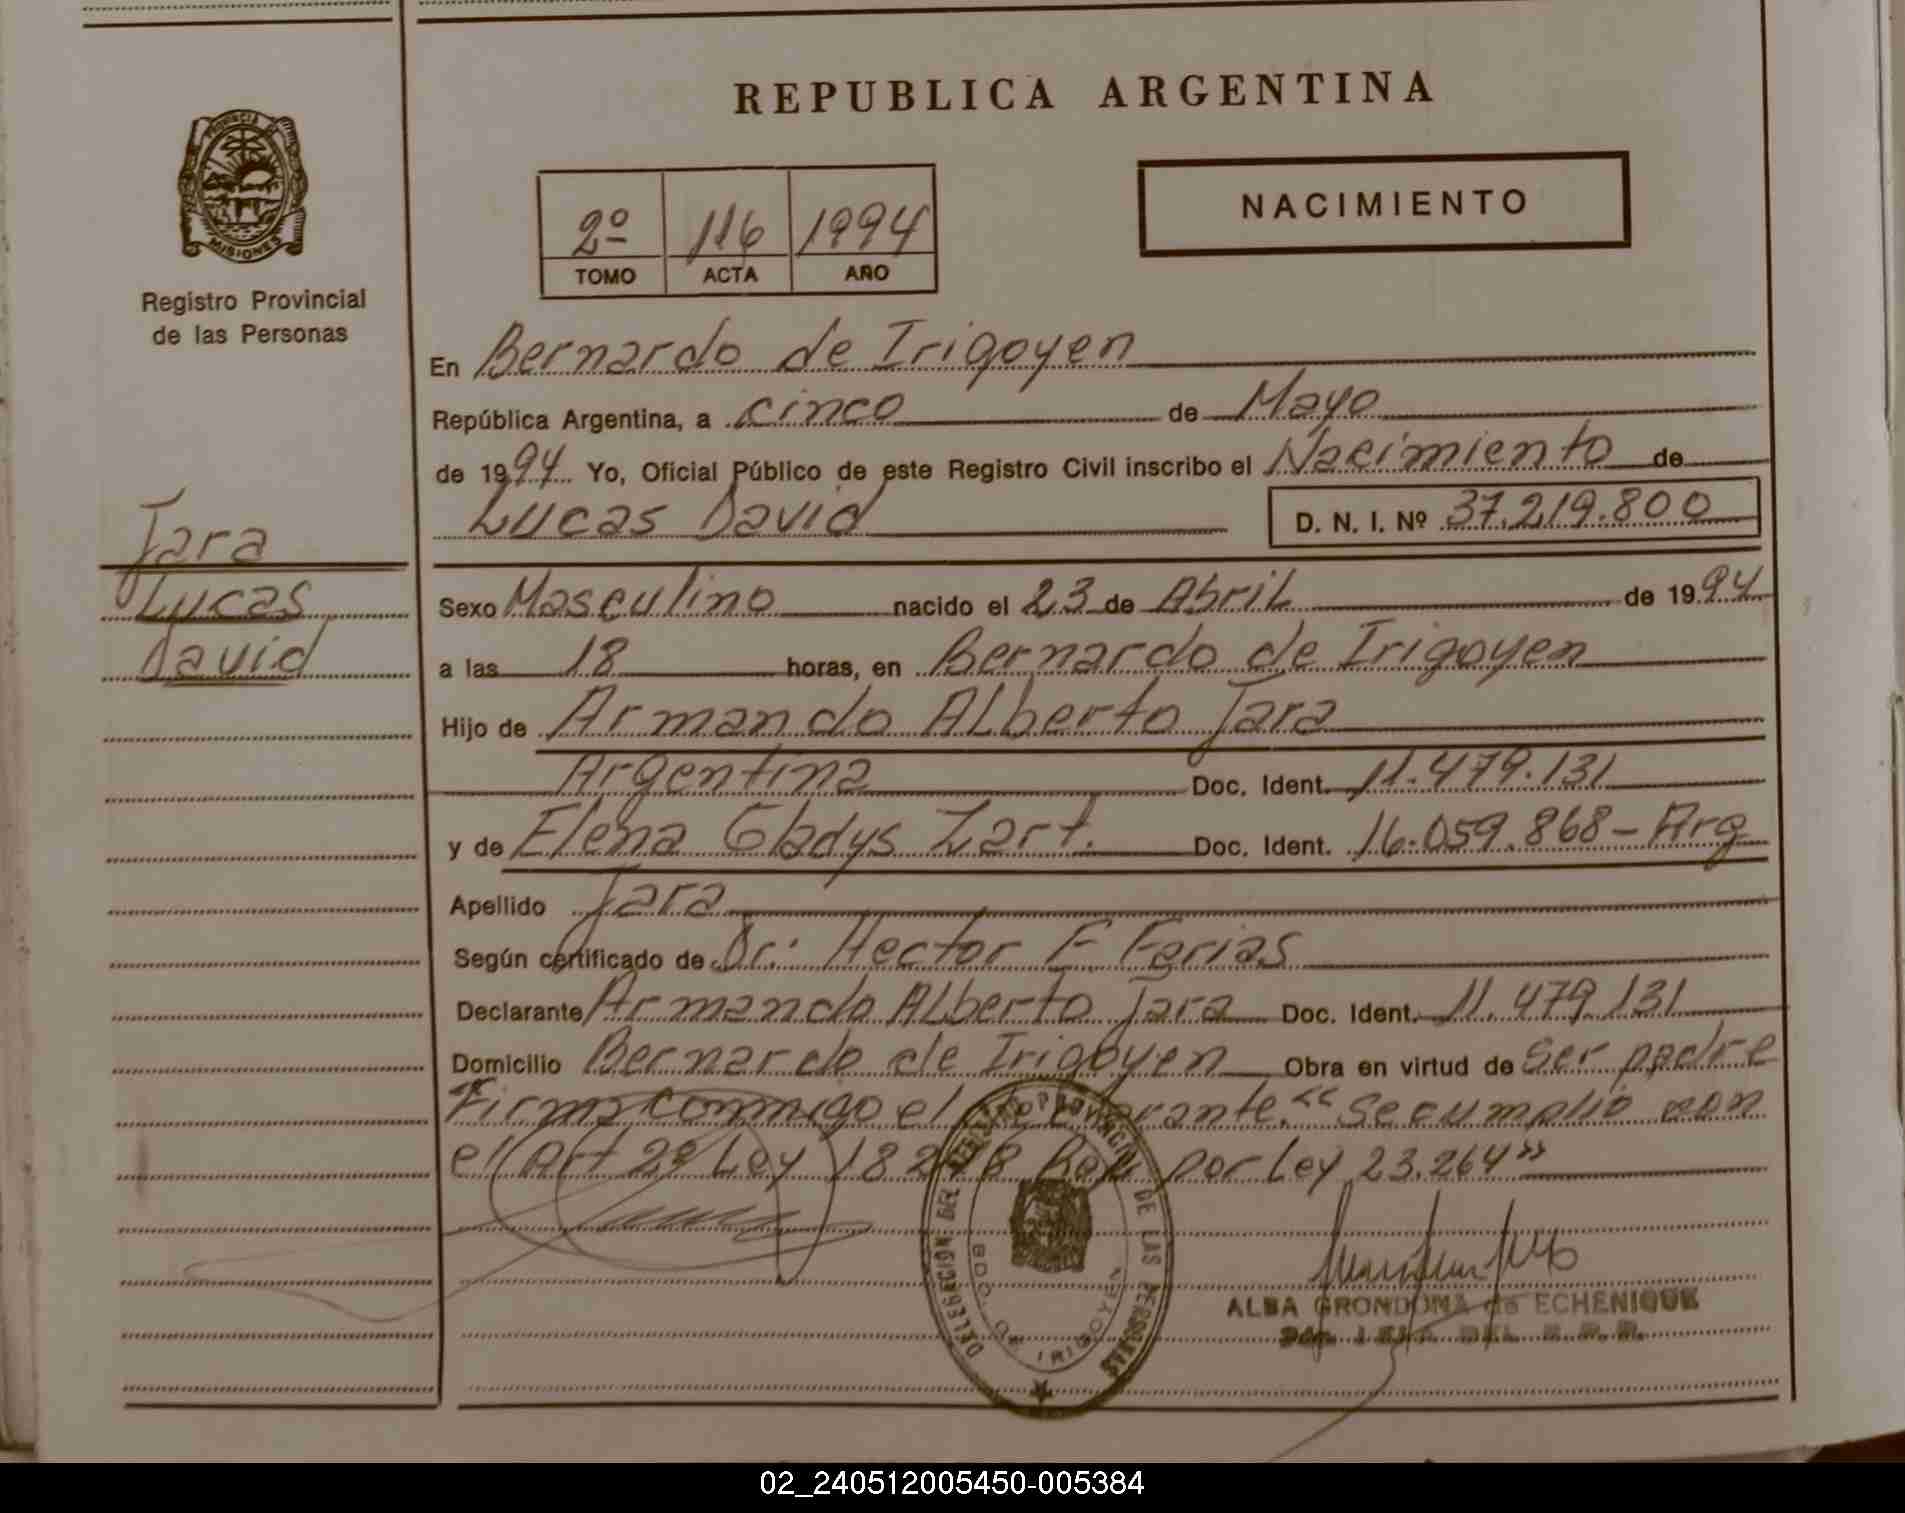 REPUBLICA ARGENTINA
PROVINCIA DE
MISIONES
Registro Provincial
de las Personas
2º 116 1994
TOMO ACTA AÑO
NACIMIENTO
En Bernardo de Irigoyen
República Argentina, a cinco de Mayo
de 1994 Yo, Oficial Público de este Registro Civil inscribo el Nacimiento de
Lucas David D. N. I. Nº 37.219.800
Jara
Lucas
David
Sexo Masculino nacido el 23 de Abril de 1994
a las 18 horas, en Bernardo de Irigoyen
Hijo de Armando Alberto Jara
Argentina Doc. Ident. 11.479.131
y de Elena Gladys Zart. Doc. Ident. 16.059.868 - Arg
Apellido Jara
Según certificado de Dr. Hector F. Farias
Declarante Armando Alberto Jara Doc. Ident. 11.479.131
Domicilio Bernardo de Irigoyen Obra en virtud de ser padre
Firma conmigo el declarante. "Se cumplió con
el Art 2º Ley 18.248 por Ley 23.264"
DELEGACION DEL REGISTRO PROVINCIAL DE LAS PERSONAS
BDO. DE IRIGOYEN
ALBA GRONDONA de ECHENIQUE
02_240512005450-005384